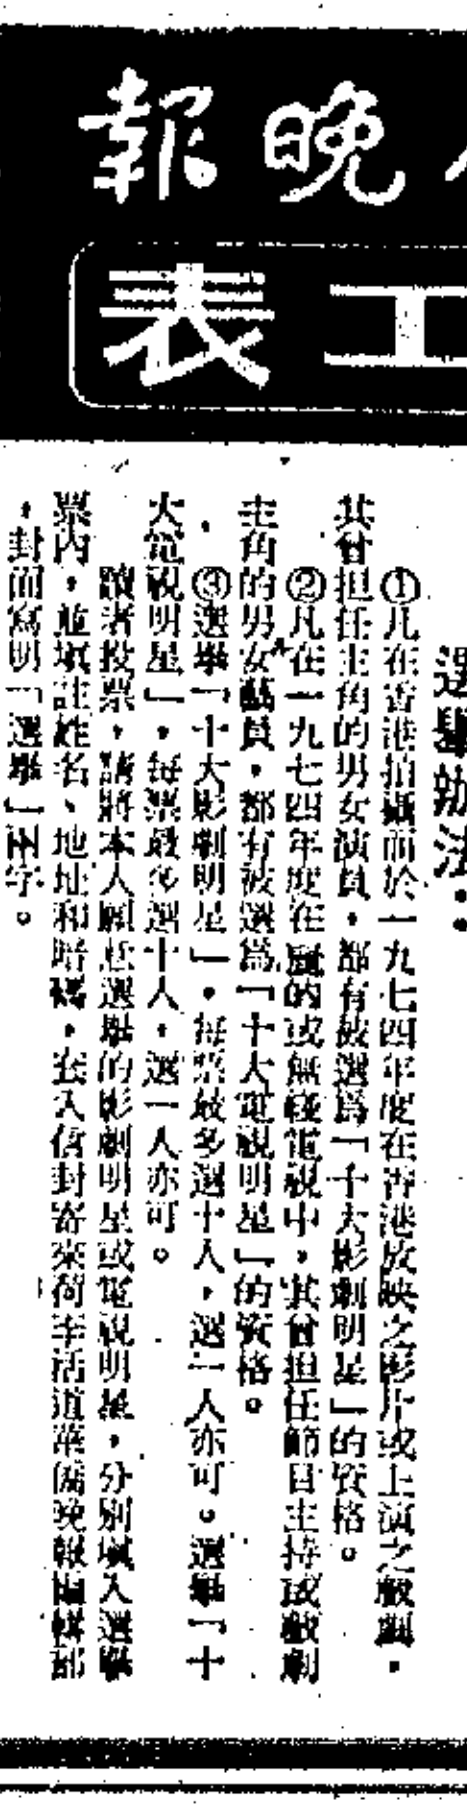 晚報
工表
選舉辦法：
①凡在香港拍攝而於一九七四年度在香港放映之影片或上演之戲劇，
其曾担任主角的男女演員，都有被選爲「十大影劇明星」的資格。
②凡在一九七四年度在麗的或無綫電視中，其曾担任節目主持或戲劇
主角的男女藝員，都有被選爲「十大電視明星」的資格。
③選舉「十大影劇明星」，每票最多選十人，選一人亦可。選舉「十
大電視明星」，每票最多選十人，選一人亦可。
讀者投票，請將本人願意選舉的影劇明星或電視明星，分別塡入選舉
票內，並塡註姓名、地址和暗碼，套入信封寄來荷李活道華僑晚報編輯部
，封面寫明「選舉」兩字。